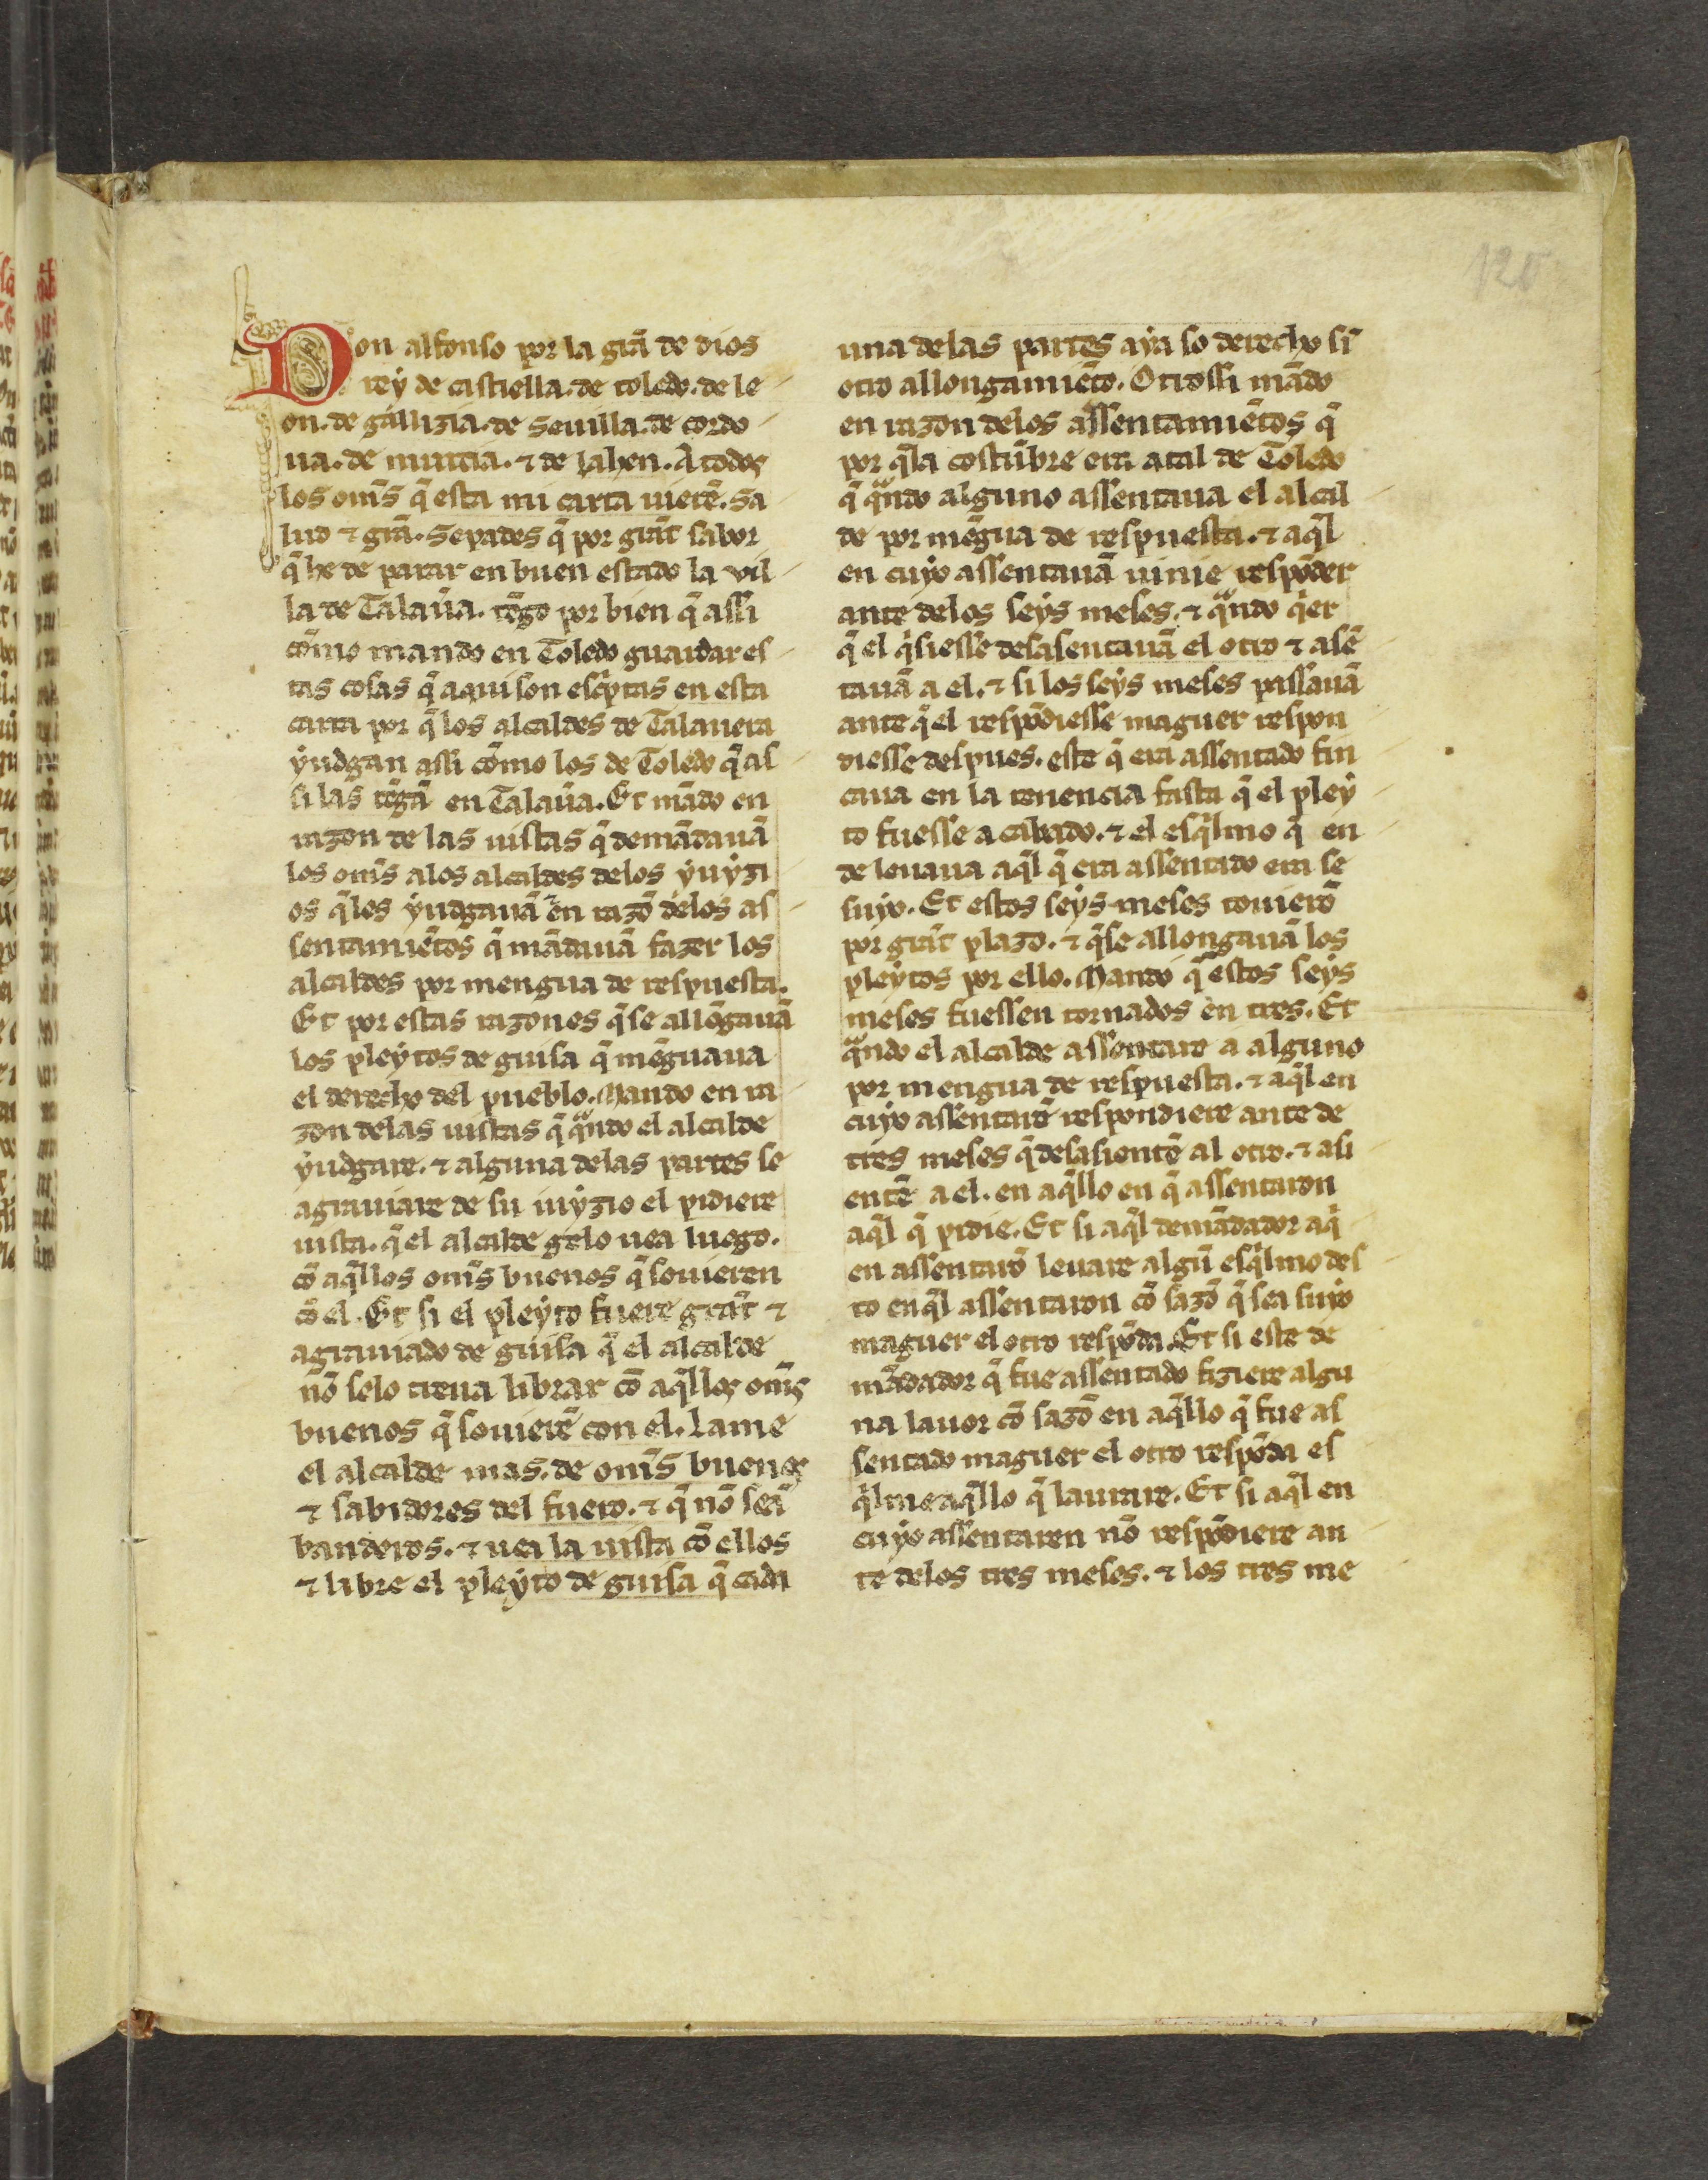 Don alfonso por la grã de dios
rey de castiella. de toledo. de le
on. de gallizia. de seuilla. de cordo
ua. de murcia. ⁊ de Jahen. A todos
los om̃s q̃ esta mi carta uierẽ. Sa
lud ⁊ grã. Sepades q̃ por grãt sabor
q̃ he de parar en buen estado la vil
la de Talau̾a. tẽgo por bien q̃ assi
cõmo mando en Toledo guardar es
tas cosas q̃ aqui son esc̾ptas en esta
carta por q̃ los alcaldes de Talauera
yudgan assi cõmo los de Toledo q̃ as
si las tẽgã en Talau̾a. Et mãdo en
razon de las uistas q̃ demãdauã
los om̃s alos alcaldes delos yuyzi
os q̃ los yudgauã ⁊ en razõ delos as
sentamiẽtos q̃ mãdauã fazer los
alcaldes por mengua de respuesta.
Et por estas razones q̃ se allõgauã
los pleytos de guisa q̃ mẽguaua
el derecho del pueblo. Mando en ra
zon delas uistas q̃ qᵃndo el alcalde
yudgare. ⁊ alguna delas partes se
agrauiare de su iuyzio el pidiere
uista. q̃ el alcalde gelo uea luego.
cõ aq̃llos om̃s buenos q̃ souieren
cõ el. Et si el pleyto fuere grãt ⁊
agrauiado de guisa q̃ el alcalde
nõ selo treua librar cõ aq̃llos om̃s
buenos q̃ souierẽ con el. Lame
el alcalde mas. de om̃s buenos
⁊ sabidores del fuero. ⁊ q̃ nõ seã
banderos. ⁊ uea la uista cõ ellos
⁊ libre el pleyto de guisa q̃ cada
una delas partes aya so derecho si
otro allongamiẽto. Otrossi mãdo
en razon delos assentamiẽtos q̃
por q̃ la costũbre era atal de Toledo
q̃ qᵃndo alguno assentaua el alcal
de por mẽgua de respuesta. ⁊ aq̃l
en cuyo assentauã uinie respõder
ante delos seys meses. ⁊ qᵃndo q̾er
q̃ el q̾siesse desasentauã el otro ⁊ asẽ
tauã a el. ⁊ si los seys meses passauã
ante q̃ el respõdiesse maguer respon
diesse despues. este q̃ era assentado fin
caua en la tenencia fasta q̃ el pley
to fuesse acabado. ⁊ el esq̾lmo q̃ en
de leuaua aq̃l q̃ era assentado era se
suyo. Et estos seys meses touierõ
por grãt plazo. ⁊ q̃ se allongauã los
pleytos por ello. Mando q̃ estos seys
meses fuessen tornados en tres. Et
qᵃndo el alcalde assentare a alguno
por mengua de respuesta. ⁊ aq̃l en
cuyo assentarẽ respondiere ante de
tres meses q̃ desasientẽ al otro. ⁊ asi
entẽ a el. en aq̃llo en q̃ assentaron
aq̃l q̃ pidie. Et si aq̃l demãdador aq̾
en assentarõ leuare algũ esq̾lmo des
to enq̃l assentaron cõ sazõ q̃ sea suyo
maguer el otro respõda. Et si este de
mãdador q̃ fue assentado fiziere algu
na lauor cõ sazõ en aq̃llo q̃ fue as
sentado maguer el otro respõda es
q̾lme aq̃llo q̃ laurare. Et si aq̃l en
cuyo assentaren nõ respõdiere an
te delos tres meses. ⁊ los tres me